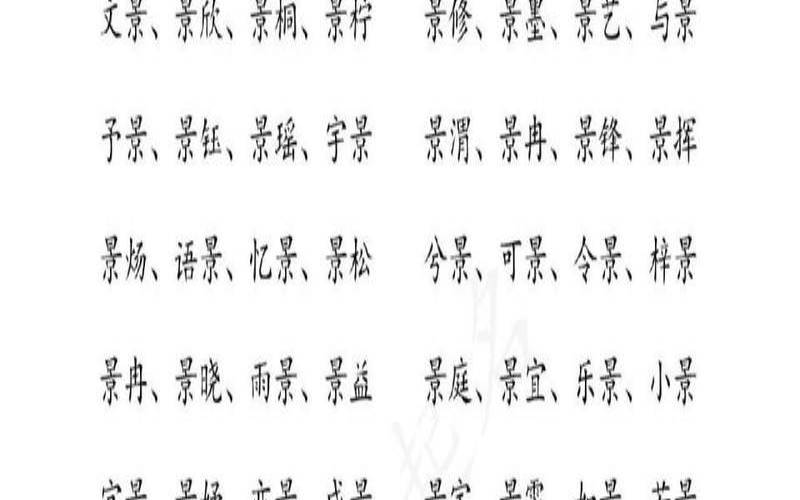 文景、景欣、景桐、景柠 景修、景墨、景艺、与景
予景、景钰、景瑶、宇景 景渭、景冉、景锋、景挥
景炀、语景、忆景、景松 兮景、可景、令景、梓景
景冉、景晓、雨景、景益 景庭、景宜、乐景、小景